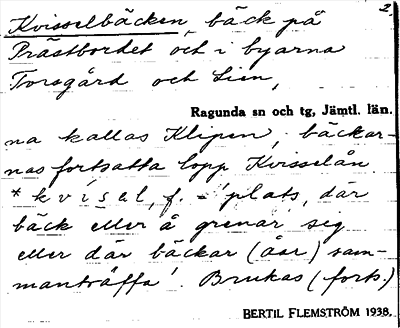 2.
Kvisselbäcken, bäck på
Prästbordet och i byarna
Torsgård och Lien,
Ragunda sn och tg, Jämtl. län.
na kallas Klipen, bäckar-
nas fortsatta lopp Kvisselån.
* kvísal, f. = 'plats, där
bäck eller å grenar sig
eller där bäckar (åar) sam-
manträffa'. Brukas (forts.)
BERTIL FLEMSTRÖM 1938.